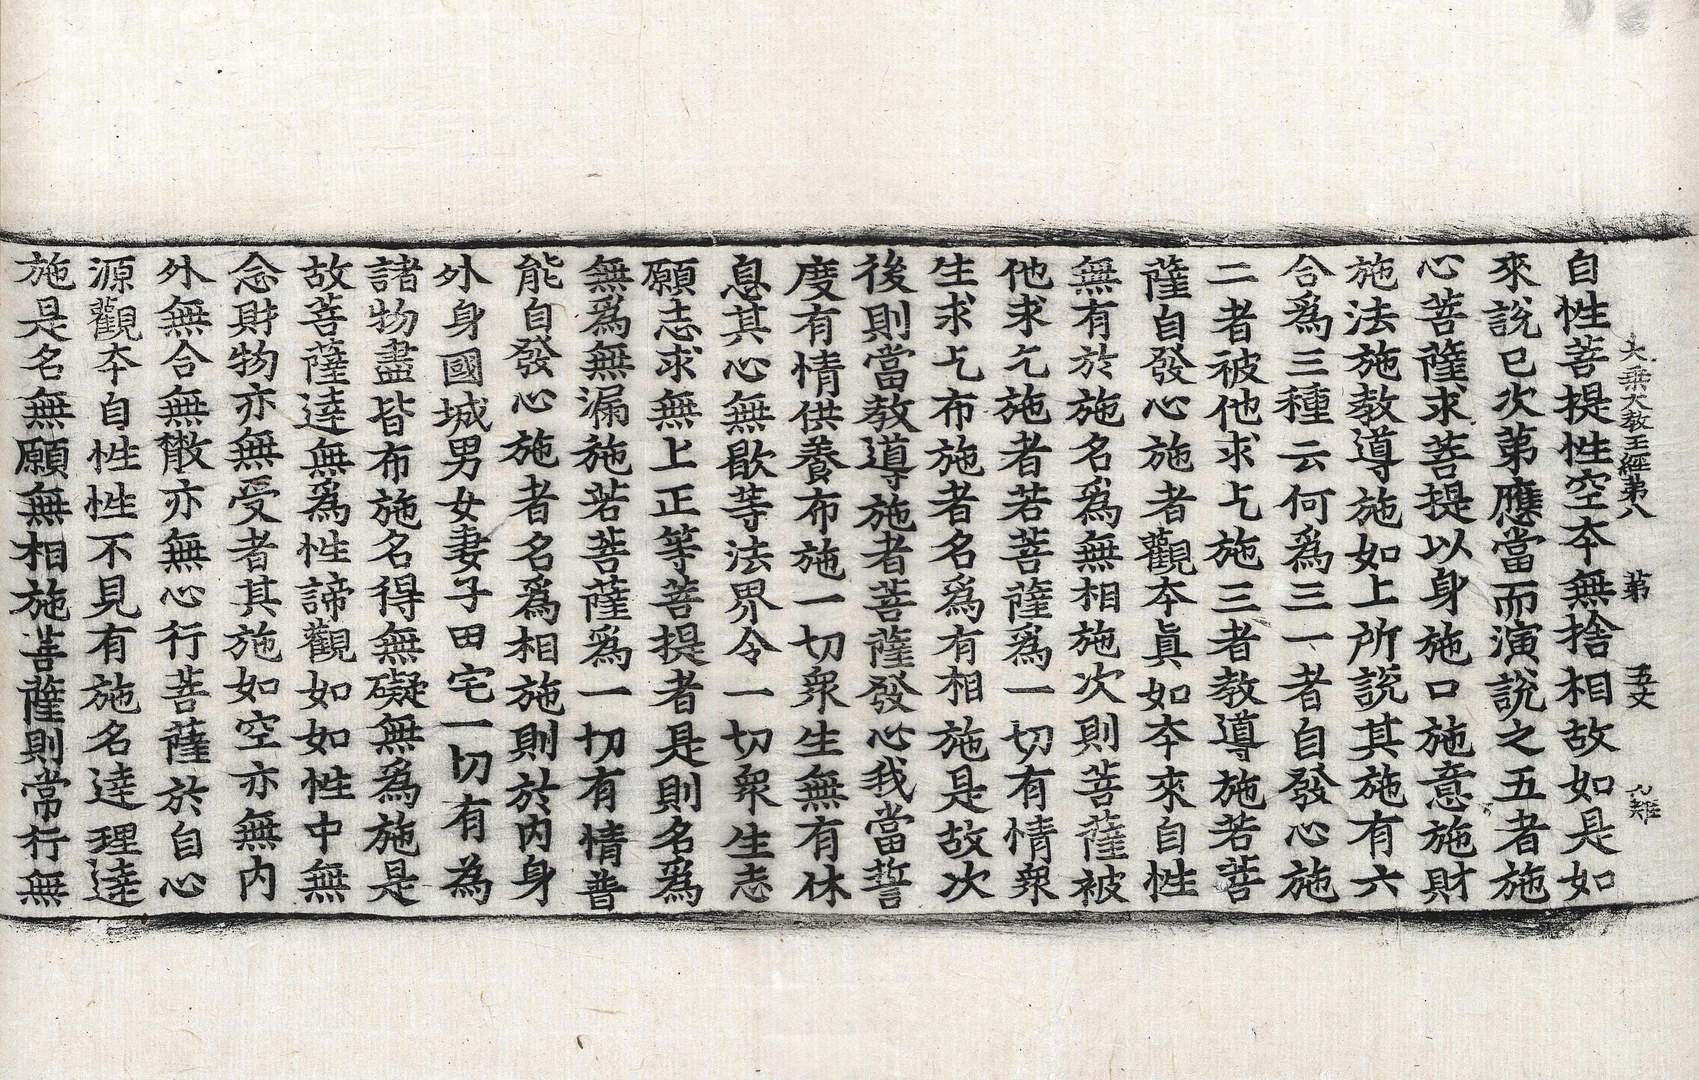 大乘大教王經第八　第　五丈　力難
自性菩提性空本無捨相故如是如
來說已次第應當而演說之五者施
心菩薩求菩提以身施口施意施財
施法施教導施如上所說其施有六
合爲三種云何爲三一者自發心施
二者被他求乞施三者教導施若菩
薩自發心施者觀本眞如本來自性
無有於施名爲無相施次則菩薩被
他求乞施者若菩薩爲一切有情衆
生求乞布施者名爲有相施是故次
後則當教導施者菩薩發心我當誓
度有情供養布施一切衆生無有休
息其心無歇等法界令一切衆生志
願志求無上正等菩提者是則名爲
無爲無漏施若菩薩爲一切有情普
能自發心施者名爲相施則於內身
外身國城男女妻子田宅一切有為
諸物盡皆布施名得無礙無爲施是
故菩薩達無爲性諦觀如如性中無
念財物亦無受者其施如空亦無內
外無合無散亦無心行菩薩於自心
源觀本自性性不見有施名達理達
施是名無願無相施菩薩則常行無